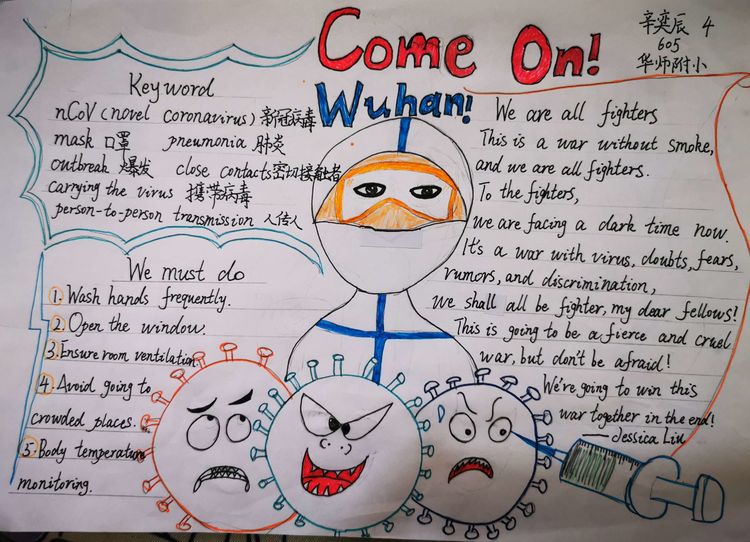 Come On!
Wuhan!
辛奕辰 4
605
华师附小
Keyword
nCoV (novel coronavirus) 新冠病毒
mask 口罩 pneumonia 肺炎
outbreak 爆发 close contacts 密切接触者
carrying the virus 携带病毒
person-to-person transmission 人传人
We must do
1. Wash hands frequently.
2. Open the window.
3. Ensure room ventilation
4. Avoid going to
crowded places.
5. Body temperature
monitoring.
We are all fighters
This is a war without smoke,
and we are all fighters.
To the fighters,
we are facing a dark time now.
It's a war with virus, doubts, fears,
rumors, and discrimination,
we shall all be fighter, my dear fellows!
This is going to be a fierce and cruel
war, but don't be afraid!
We're going to win this
war together in the end!
—— Jessica Liu